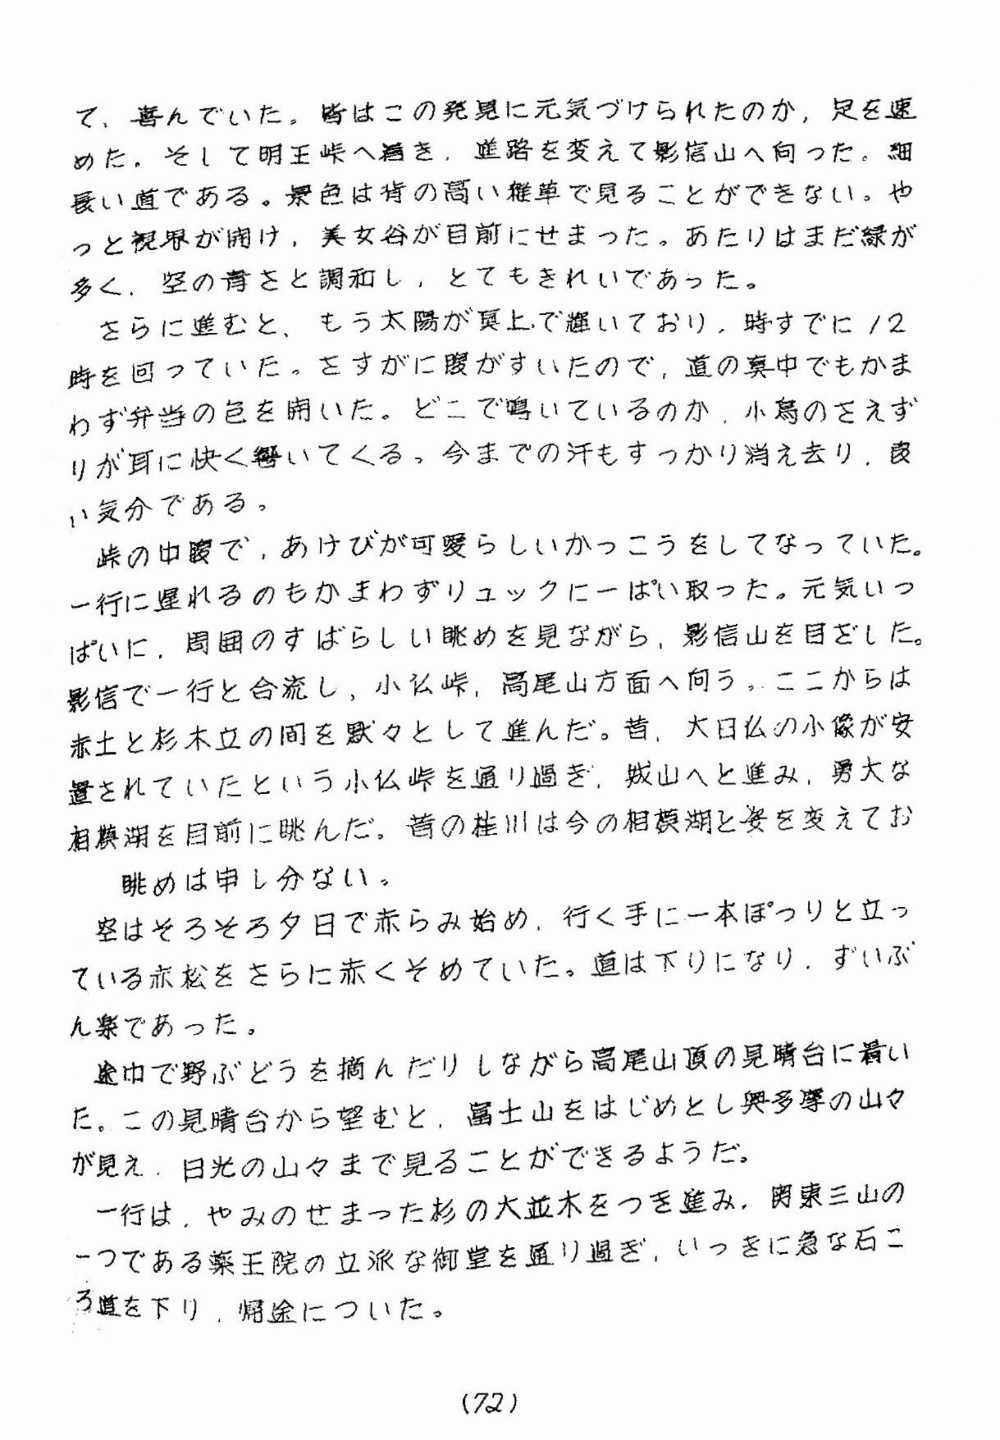 て、喜んでいた。皆はこの発見に元気づけられたのか，足を速
めた。そして明王峠へ着き，進路を変えて影信山へ向った。細
長い道である。景色は背の高い雑草で見ることができない。や
っと視界が開け，美女谷が目前にせまった。あたりはまだ緑が
多く，空の青さと調和し，とてもきれいであった。
さらに進むと、もう太陽が真上で輝いており，時すでに12
時を回っていた。さすがに腹がすいたので，道の真中でもかま
わず弁当の包を開いた。どこで鳴いているのか，小鳥のさえず
りが耳に快く響いてくる。今までの汗もすっかり消え去り，良
い気分である。
峠の中腹で，あけびが可愛らしいかっこうをしてなっていた。
一行に遅れるのもかまわずリュックに一ぱい取った。元気いっ
ぱいに，周囲のすばらしい眺めを見ながら，影信山を目ざした。
影信で一行と合流し，小仏峠，高尾山方面へ向う。ここからは
赤土と杉木立の間を黙々として進んだ。昔，大日仏の小像が安
置されていたという小仏峠を通り過ぎ，城山へと進み，勇大な
相模湖を目前に眺んだ。昔の桂川は今の相模湖と姿を変えてお
眺めは申し分ない。
空はそろそろ夕日で赤らみ始め，行く手に一本ぽつりと立っ
ている赤松をさらに赤くそめていた。道は下りになり，ずいぶ
ん楽であった。
途中で野ぶどうを摘んだりしながら高尾山頂の見晴台に着い
た。この見晴台から望むと，富士山をはじめとし奥多摩の山々
が見え，日光の山々まで見ることができるようだ。
一行は，やみのせまった杉の大並木をつき進み，関東三山の
一つである薬王院の立派な御堂を通り過ぎ，いっきに急な石こ
ろ道を下り，帰途についた。
(72)